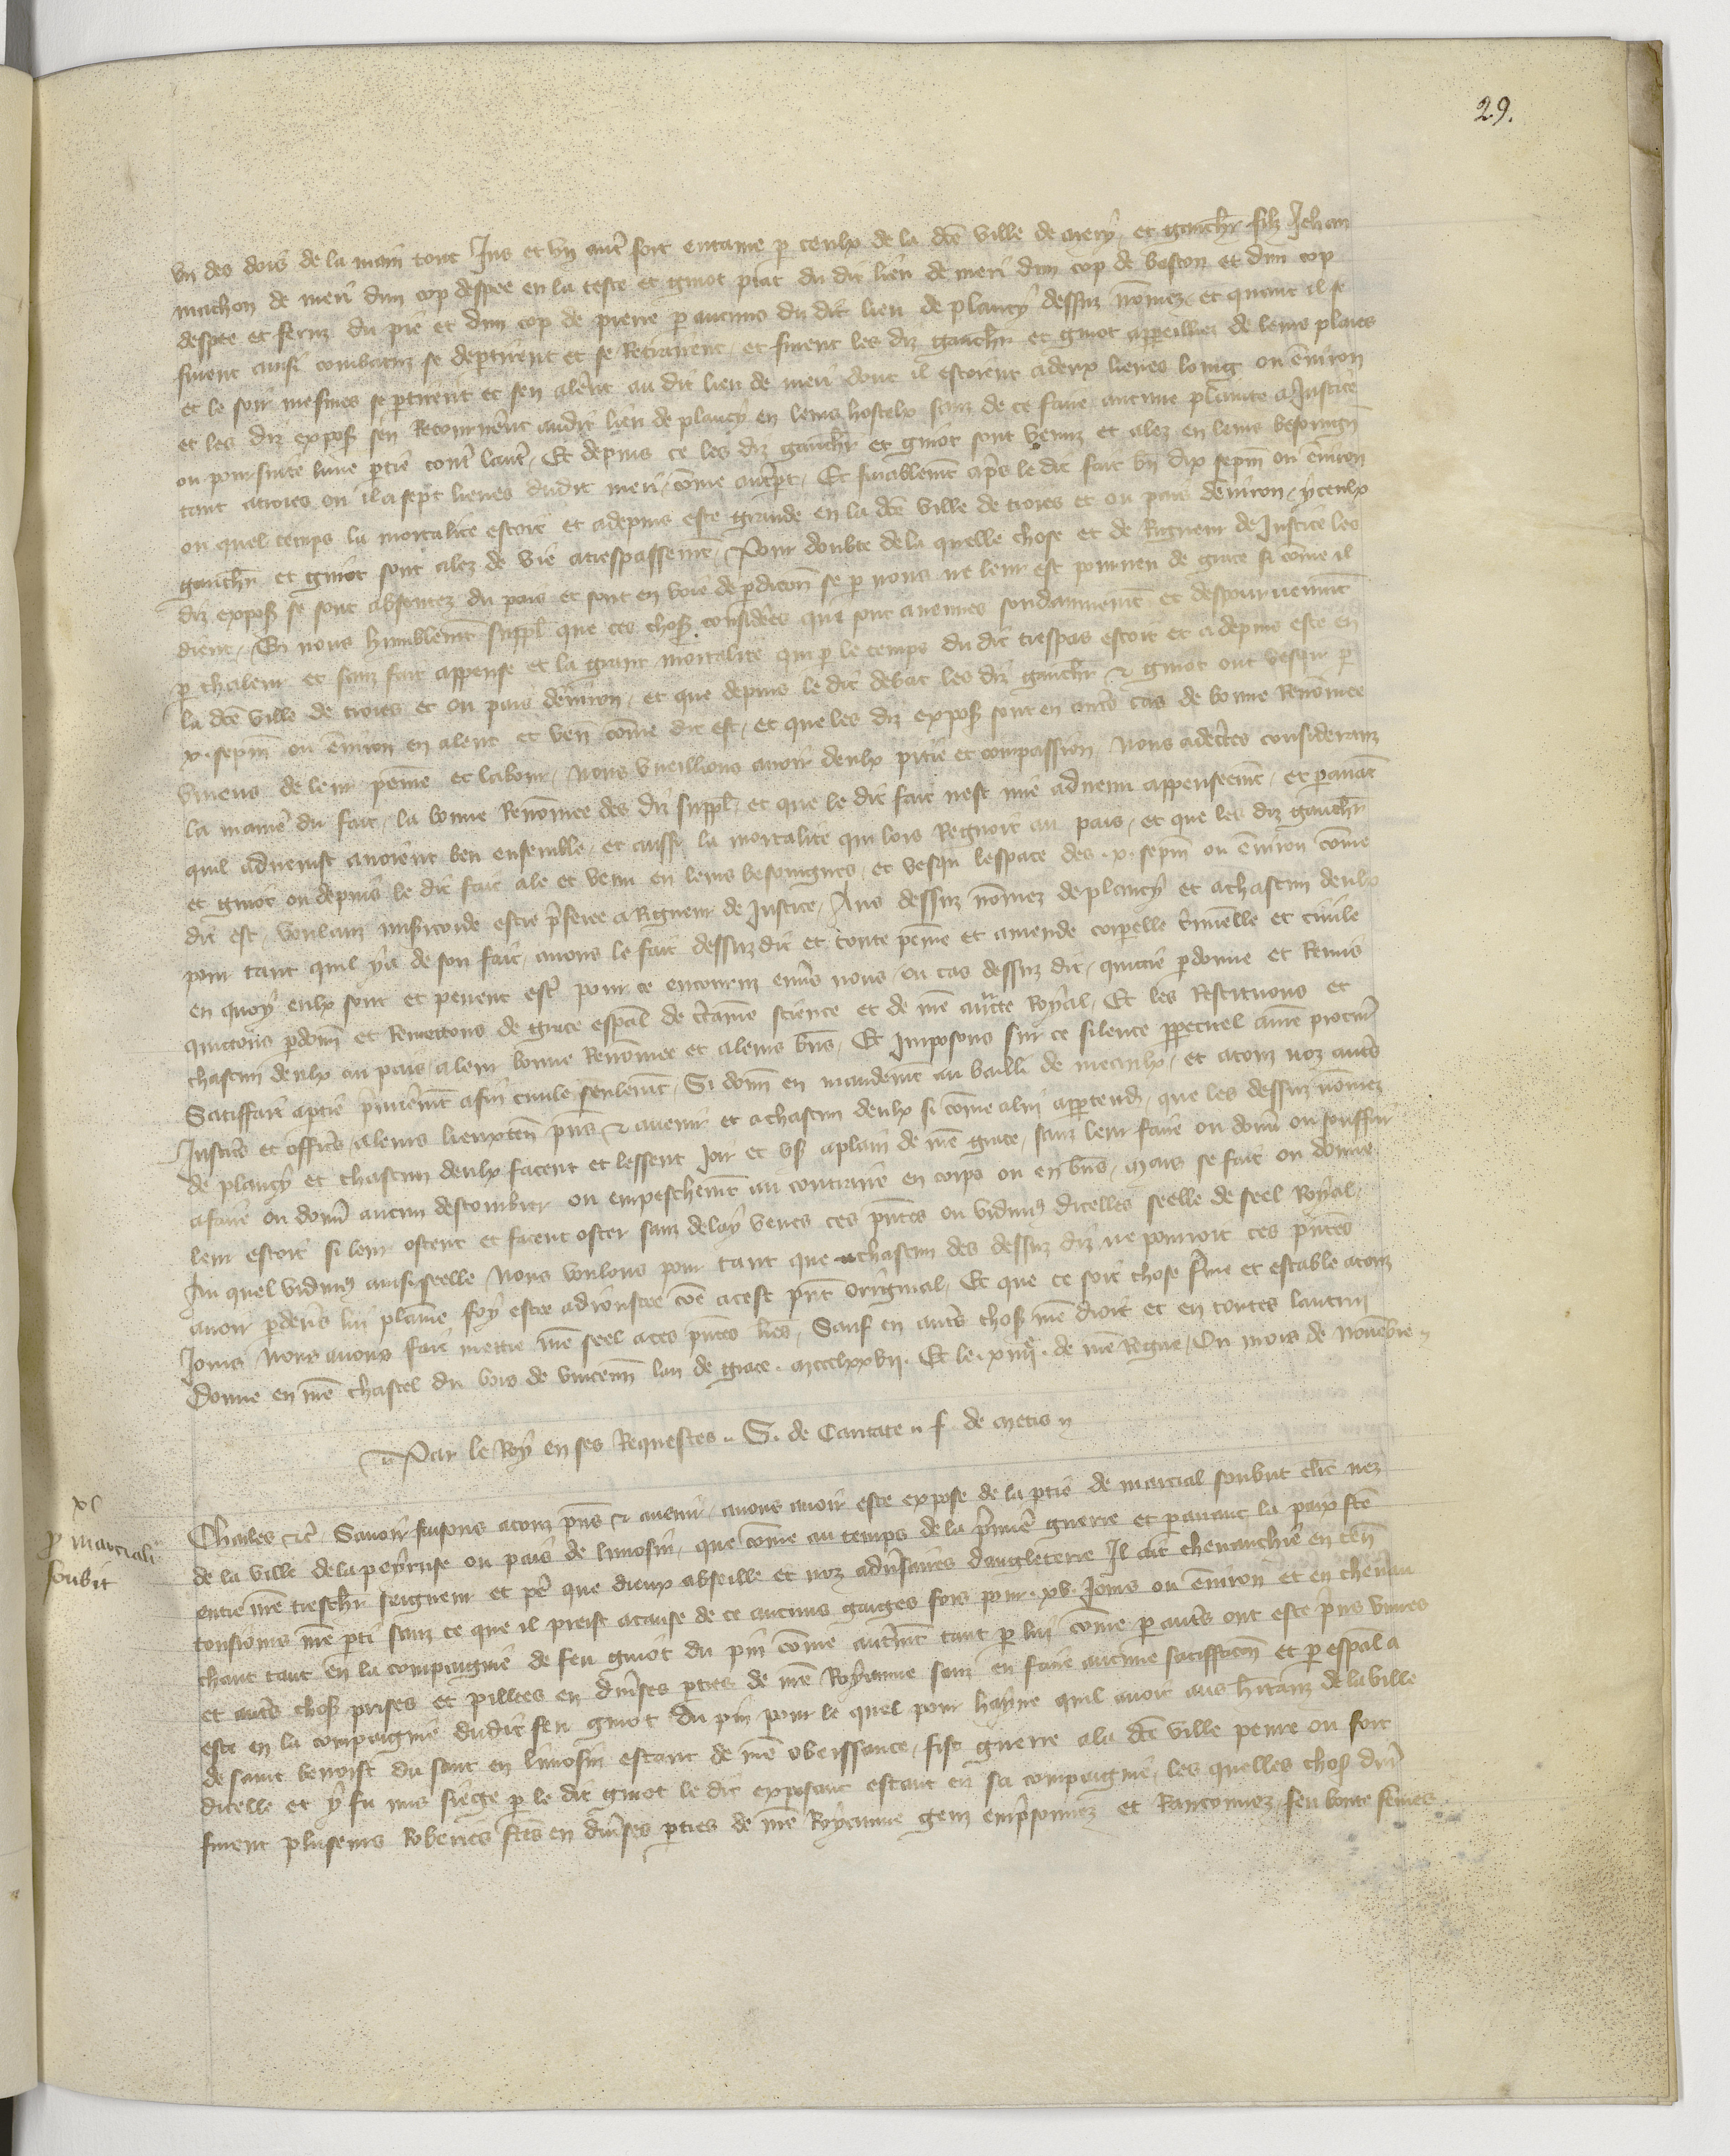 29.
vn des dois de la main tout Jus et vn autre fort entame p ceulx de la dce ville de mery et gauchr filz Jehan
machon de meri dun cop despee en la teste et guiot ptat du dit lieu de meri dun cop de baston et dun cop
despee et feruz du pie et dun cop de pierre p aucuns du dit lieu de plancy dessuz nomez et quant il se
furent ainsi combatuz se deptirent et se Retrairent et furent les diz gauchr et guiot appeillez de leurs plaies
et le soir mesmes se ptirent et sen alerent au dit lieu de meri dont il estoient a deux lieues loing ou environ
et les diz expos sen Retournerent audit lieu de plancy en leurs hostelx sanz de ce faire aucune plainte a Justice
ou poursuite lune ptie contre lautre Et depuis ce les diz gauchr et guiot sont venuz et alez en leurs besoingn
tant a troies ou il a sept lieues dudit meri come autrept Et finablemt apres le dit fait bn dix sepm ou environ
ou quel temps la mortalite estoit et a depuis este grande en la dce ville de troies et ou pais denviron yceulx
gauchr et guiot sont alez de vie a trespassement Pour doubte de la quelle chose et de Rigueur de Justice les
diz expos se sont absentez du pais et sont en voie de pdicon se p nous ne leur est pourveu de grace si come il
dient En nous humblemt suppl que ces chos considees qui sont avenues soudainnemt et despourveuemt
p chaleur et sanz fait appense et la grant mortalite qui p le temps du dit trespas estoit et a depuis este en
la dce ville de troies et ou pais denviron et que depuis le dit debat les diz gauchr et guiot ont vesqu p
x. sepm ou environ en alent et ven come dit est et que les diz expos sont en autres cas de bonne Renomee
vivens de leur peine et labour Nous vueillions avoir deulx pitie et compassion Nous adectes considerans
la maniere du fait la bonne Renomee des diz suppl et que le dit fait nest mie advenu appenseemt et pavat
quil advenist avoient beu ensemble et aussi la mortalite qui lors Regnoit au pais et que les diz gauchr
et guiot ou depuis le dit fait ale et venu en leurs besoingnes et vesqu lespace des .x. sepm ou environ come
dit est voulanz misericorde estre prferee a Rigueur de Justice Aus dessuz nomez de plancy et a chascun deulx
pour tant quil ya de son fait avons le fait dessuzdit et toute peine et amende corpelle crimielle et civile
en quoy eulx sont et pevent estre pour ce encouruz envers nous ou cas dessuz dit quictie pdonne et Remis
quictons pdonn et Remettons de grace espal de certaine science et de nre aucte Royal Et les Restituons et
chascun deulx au pais a leur bonne Renomee et a leurs bns Et Imposons sur ce silence ppetuel a nre procur
Satisffait a ptie prmiermt a fin civile seulemt Si donn en mandemt au bailli de meaulx et a touz noz autres
Justices et offices a leurs lieuxten pns et avenir et a chascun deulx si come a lui apptend que les dessuz nomez
de plancy et chascun deulx facent et lessent Joir et us a plain de nre grace sanz leur faire ou donn ou souffrir
a faire ou donn aucun destourbier ou empeschemt au contraire en corps ou en bns Mais se fait ou donne
leur estoit si leur ostent et facent oster sanz delay veues ces pntes ou vidimus dicelles seelle de seel Royal
Au quel vidimus ainsi seelle Nous voulons pour tant que chascun des dessuz diz ne pourroit ces pntes
avoir pdevs lui plaine foy estre adjoustee coe a cest pnt original Et que ce soit chose ferme et estable a touz
Jours Nous avons fait mettre nre seel a ces pntes lres Sauf en autres chos nre droit et en toutes lautrui
Donne en nre chastel du bois de vincenn lan de grace .mccclxxvii. Et le .xiiii. de nre Regne Ou mois de Novembre
Par le Roy en ses Requestes S. de Caritate f. de metis
xl
p marciali
soubit
Charles etc Savoir faisons a touz pns et avenir avons avoir este expose de la ptie de marcial soubut clerc nez
de la ville de la peyruse ou pais de limosin que come au temps de la prmiere guerre et pavant la paix fete
entre nre treschr seigneur et pe que dieux absoille et noz adversaires dangleterre Il ait chevauchie en ten
tousiours nre pti sanz ce que il preist a cause de ce aucuns gaiges fors pour .xv. Jours ou environ et en chevau
chant tant en la compaignie de feu guiot du pin come autremt tant p lui come p autres ont este prins vivres
et autres chos prises et pillees en diverses pties de nre Royaume sanz en faire aucune satisffacon et p espal a
este en la compaignie dudit feu guiot du pin pour le quel pour hayne quil avoit aus hitanz de la ville
de saint benoist du saut en limosin estant de nre obeissance fist guerre a la dce ville penre ou fort
dicelle et y fu mis siege p le dit guiot le dit exposant estant en sa compaignie les quelles chos dur
furent plusieurs Roberies ftes en diverses pties de nre Royaume genz emprisonnez et Ranconnez feu boute femes